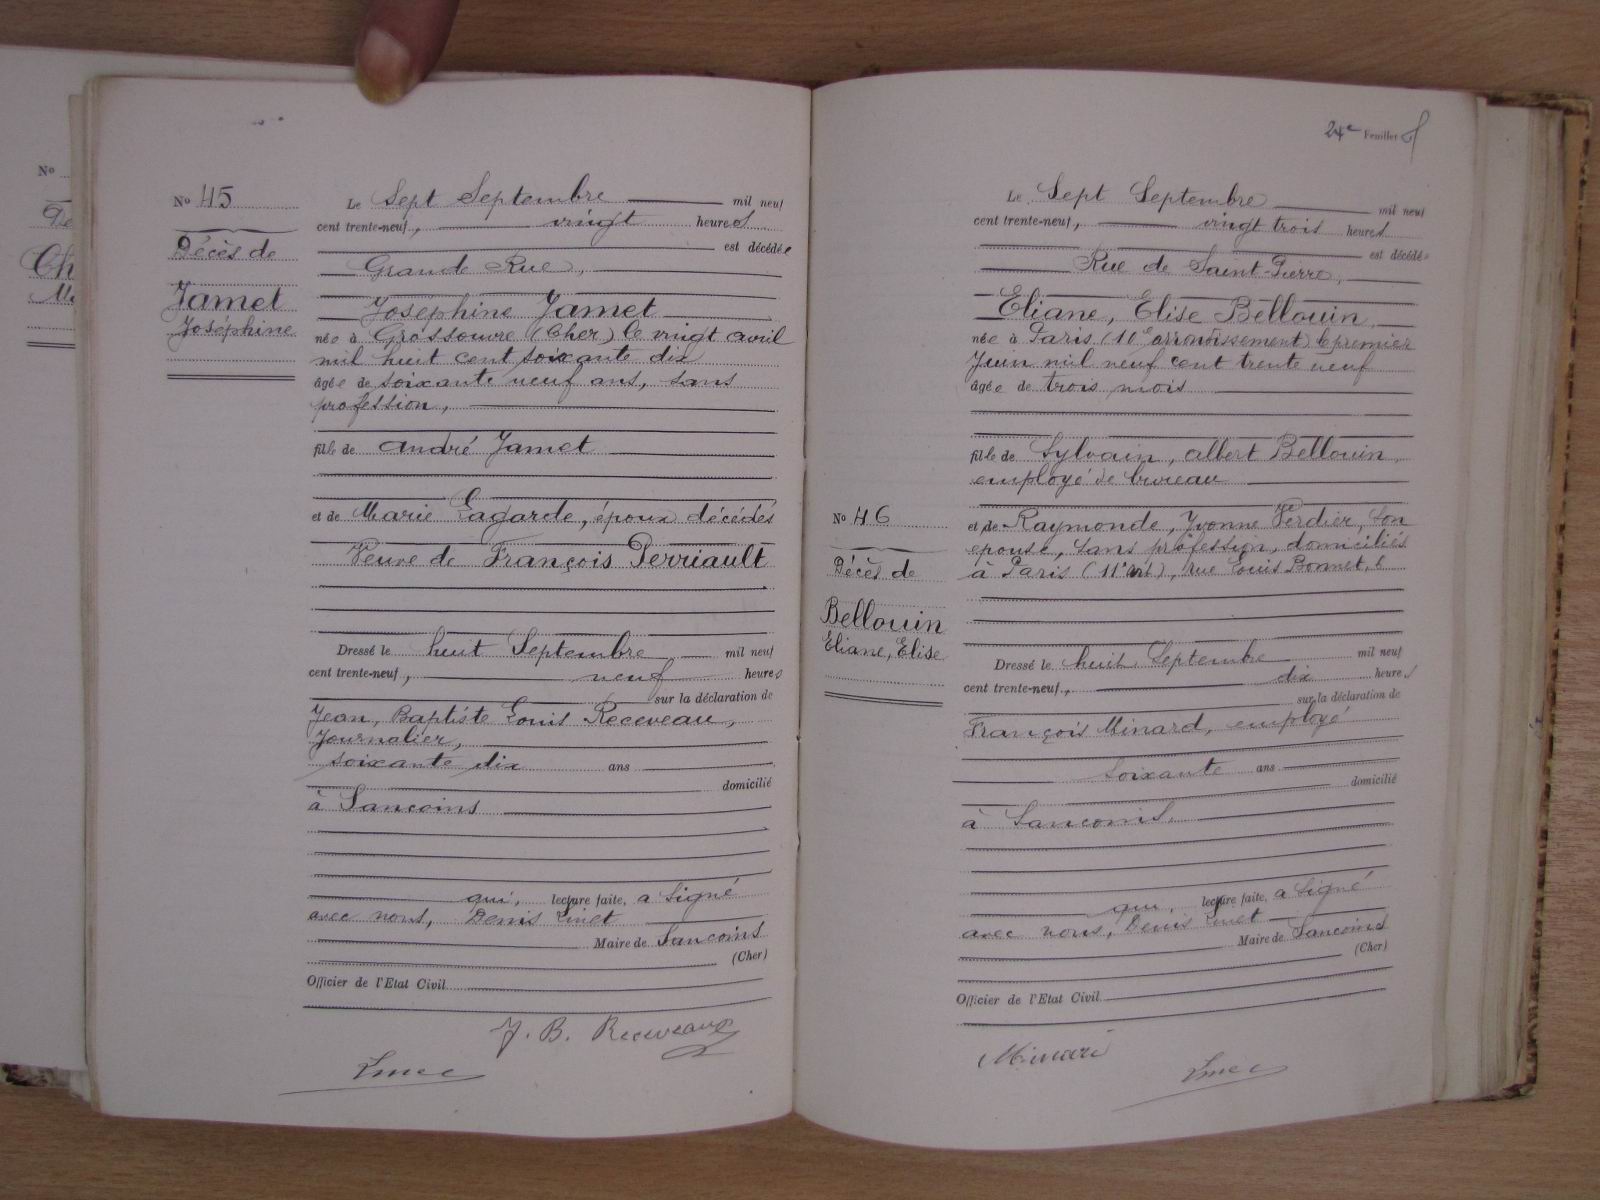 No
No 45
Décès de
Jamet
Joséphine
Le Sept Septembre mil neuf
cent trente-neuf, vingt heures
est décédée
Grande Rue,
Joséphine Jamet
née à Grossouvre (Cher) le vingt avril
mil huit cent soixante dix
âgée de soixante neuf ans, sans
profession,
fille de André Jamet
et de Marie Lagarde, époux décédés
Veuve de François Perriault
Dressé le huit Septembre mil neuf
cent trente-neuf, neuf heures
sur la déclaration de
Jean, Baptiste Louis Receveau,
Journalier,
soixante dix ans
domicilié
à Sancoins
qui, lecture faite, a signé
avec nous, Denis
Maire de Sancoins
(Cher)
Officier de l'Etat Civil
J. B. Receveau
24e Feuillet
Le Sept Septembre mil neuf
cent trente-neuf, vingt trois heures
est décédée
Rue de Saint-Pierre,
Eliane, Elise Bellouin
née à Paris (10e arrondissement) le premier
Juin mil neuf cent trente neuf
âgée de trois mois
fille de Sylvain, albert Bellouin,
employé de bureau
No 46
Décès de
Bellouin
Eliane, Elise
et de Raymonde, Yvonne Verdier, son
épouse, sans profession, domiciliés
à Paris (11e arrt), rue Louis Bonnet, 6
Dressé le huit Septembre mil neuf
cent trente-neuf, dix heures
sur la déclaration de
François Minard, employé
soixante ans
domicilié
à Sancoins,
qui, lecture faite, a signé
avec nous, Denis
Maire de Sancoins
(Cher)
Officier de l'Etat Civil
Minard